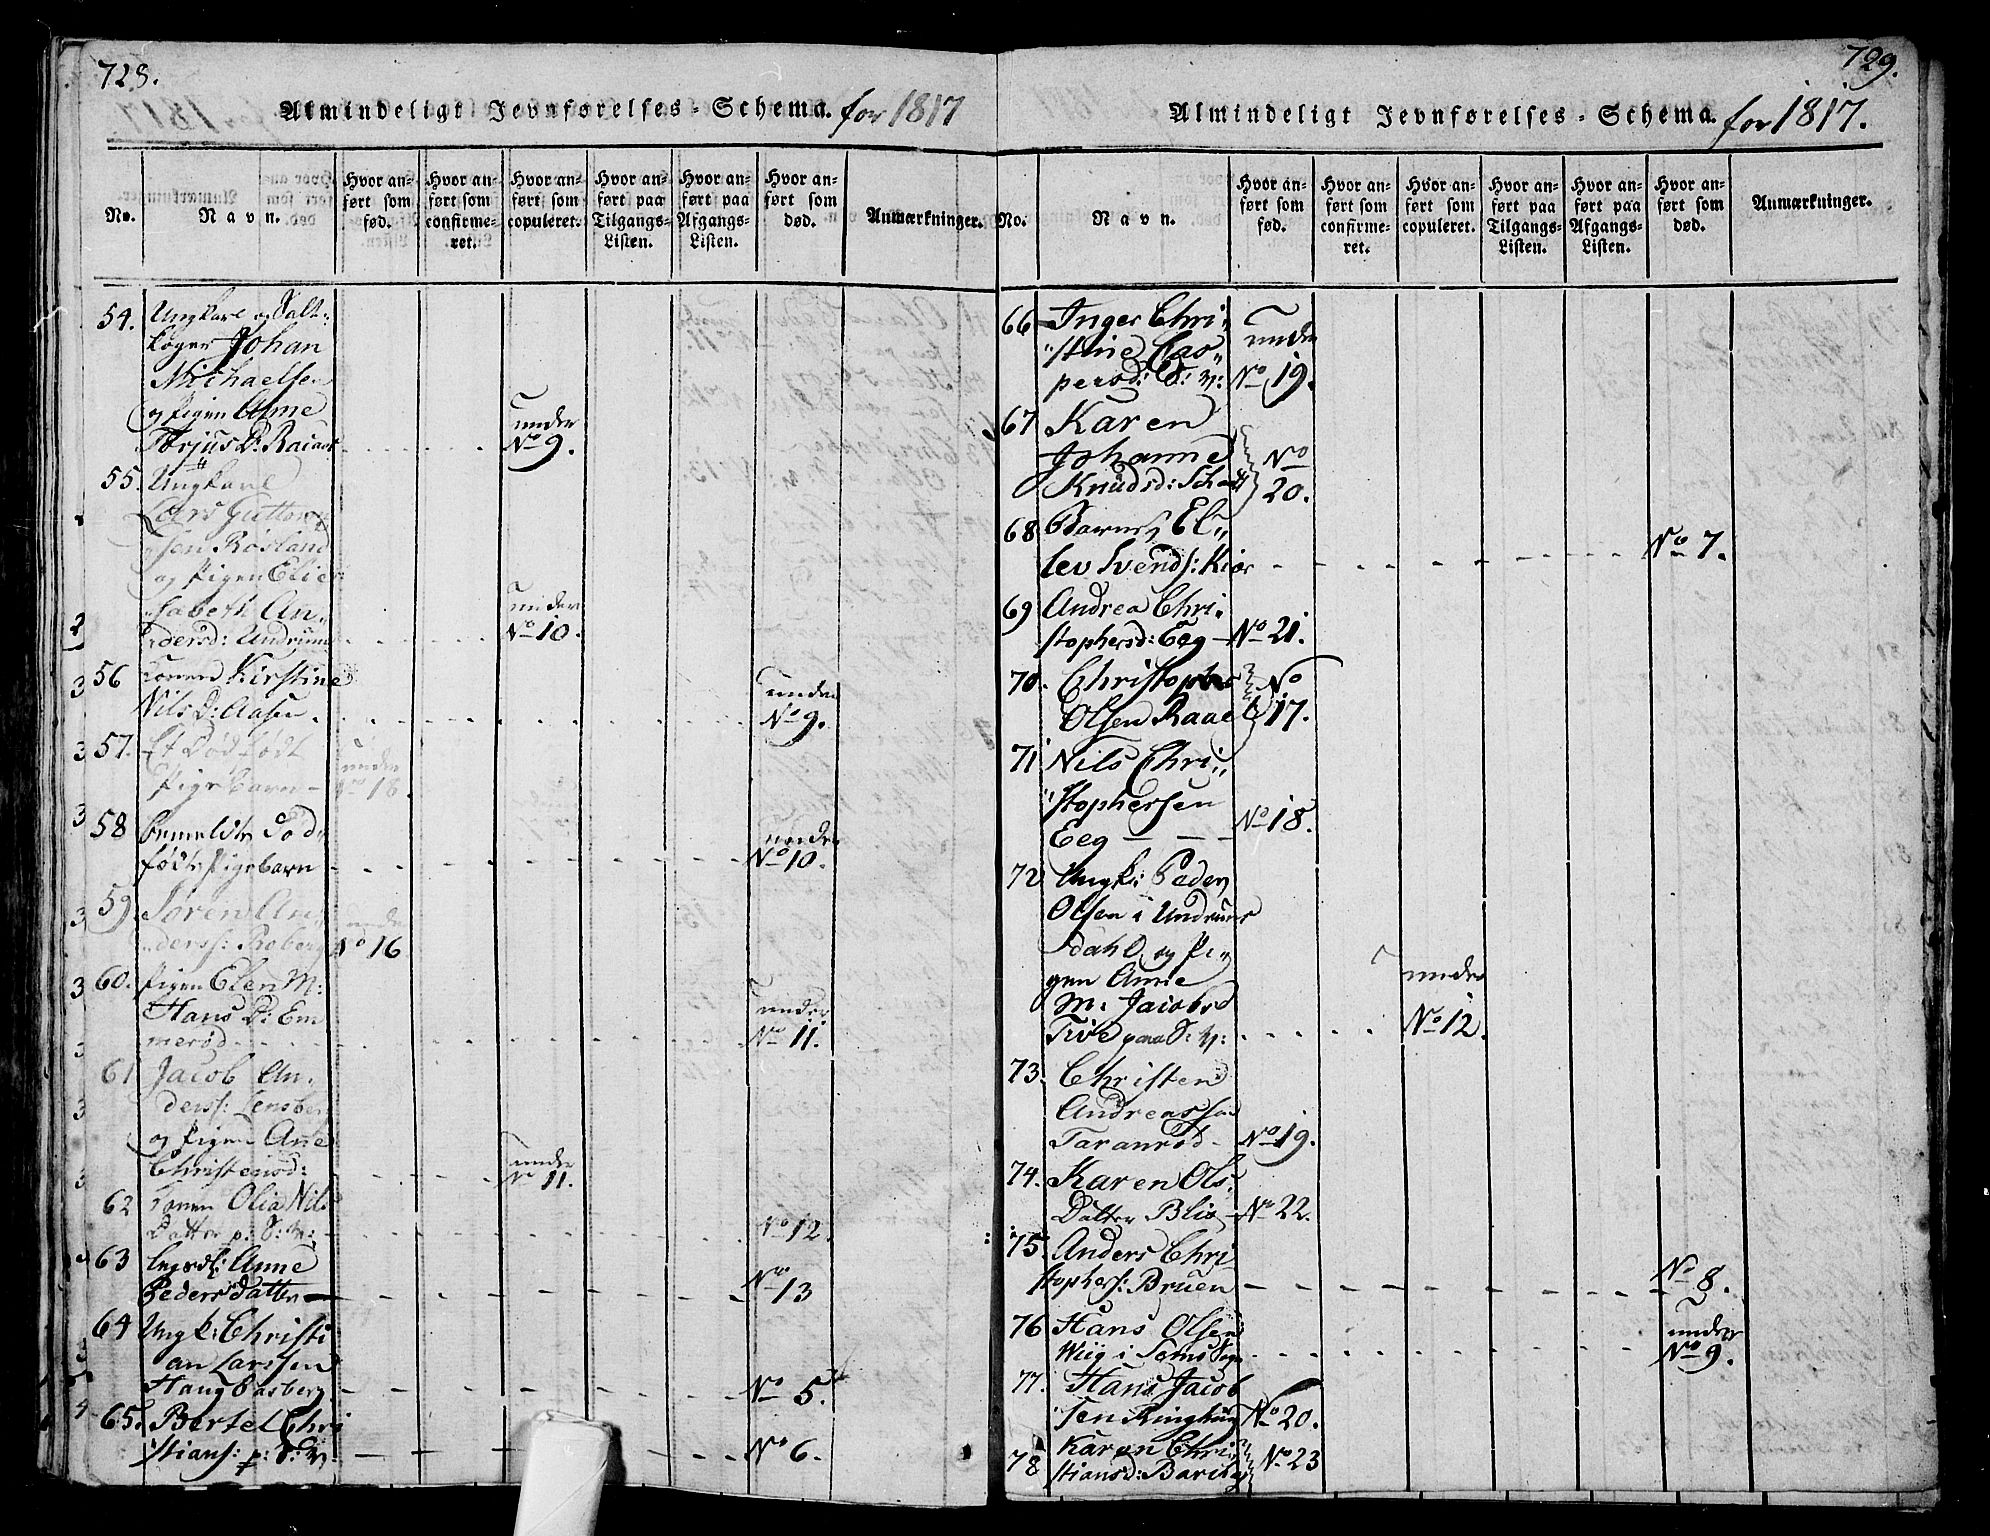 728.
Almindeligt Jevnførelses-Schema. for 1817
No.
Navn.
Hvor anført som fød.
Hvor anført som confirmeret.
Hvor anført som copuleret.
Hvor anført paa Tilgangs-Listen.
Hvor anført paa Afgangs-Listen.
Hvor anført som død.
Anmærkninger.
54. Ungkarl og Salt-
koger Johan
Michaelsen
og Pigen Anne
Torjus D:
under
No 9.
55. Ungkarl
Lars Guttorm
sen Røsland
og Pigen Elie
sabeth An
dersd: Undrum
under
No 10.
56 Konen Kirstine
Nils D: Aasen
under
No 9.
57. Et Dødfødt
Pigebarn
under
No 18.
58 bemeldte Død
fødte Pigebarn
under
No 10.
59. Søren An
derss: Roberg
No 16
60. Pigen Elen M:
Hans D: Em
merød
under
No 11.
61 Jacob An
derss: Lensberg
og Pigen Ane
Christensd:
under
No 11.
62 Konen Olia Nils
Datter p: S: V:
No 12.
63 Anne
Peders Datter
No 13
64 Ungk: Christi
an Larssen
Haugbasberg
No 5.
65. Bertel Chri
stians: p: S: V:
No 6.
729.
Almindeligt Jevnførelses-Schema. for 1817.
No.
Navn.
Hvor anført som fød.
Hvor anført som confirmeret.
Hvor anført som copuleret.
Hvor anført paa Tilgangs-Listen.
Hvor anført paa Afgangs-Listen.
Hvor anført som død.
Anmærkninger.
66 Inger Chri
stine Cas
persd: S: V:
under
No 19.
67 Karen
Johanne
Knudsd:
No
20.
68 Barnet El
lev Svends: Kiær
No 7.
69 Andrea Chri
stophersd: Eeg
No 21.
70. Christopher
Olsen Raae
No
17.
71 Nils Chri
stophersen
Eeg
No 18.
72 Ungk: Peder
Olsen i Undrums
dahl og Pi
gen Anne
M: Jacobsd
Tive paa S: V:
under
No 12.
73. Christen
Andreassen
Taranrød
No 19.
74. Karen Ols
Datter Blix
No 22.
75. Anders Chri
stophers: Bruen
No 8.
76 Hans Olsen
Wiig i Sems Sogn
under
No 9.
77. Hans Jacob
sen Ringhaug
No 20.
78 Karen Chri
stiansd:
No 23